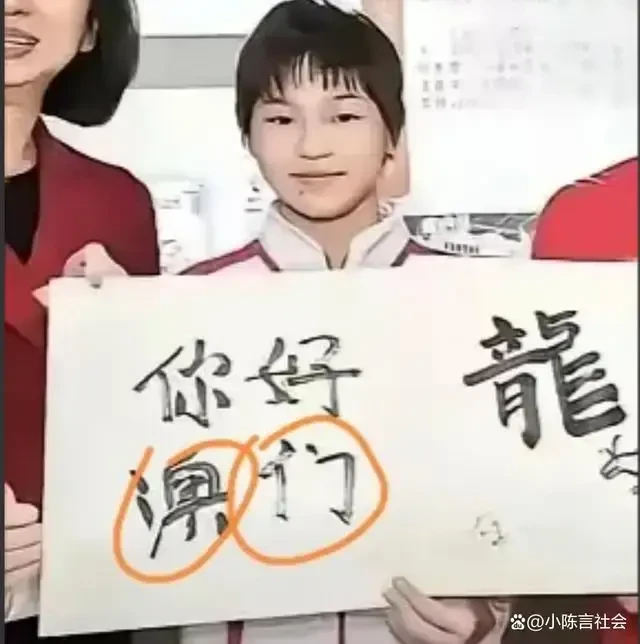 你好
澳门
龍
小陈言社会